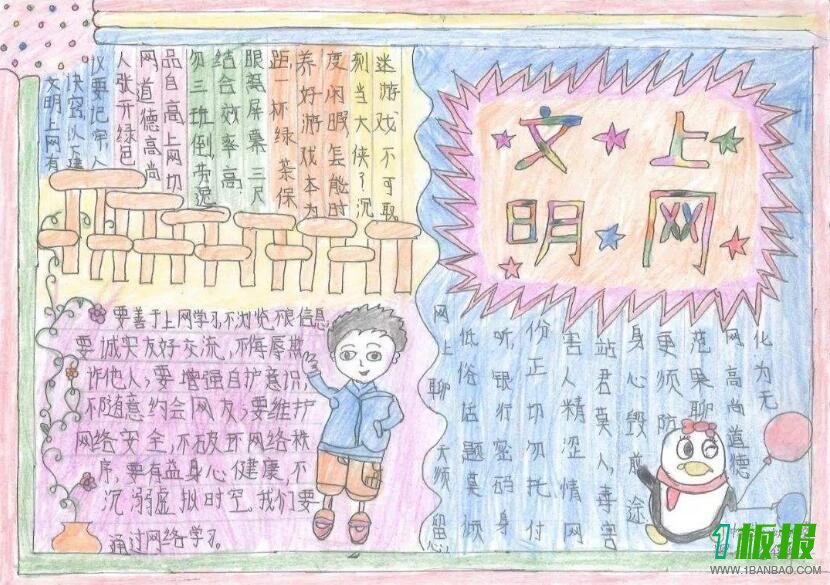 文明
上网
文明上网有
诀窍以下建
仪要记牢人
人张开绿色
网道德高尚
品自高上网切
勿三班倒,劳逸
结合效率高
眼离屏幕三尺
距一杯绿茶保
养好游戏本为
度闲暇怎能时
刻当大侠了沉
迷游戏不可取
要善于上网学习,不浏览不良信息,
要诚实友好交流,不侮辱欺
诈他人;要增强自护意识,
不随意约会网友;要维护
网络安全,不破坏网络秩
序,要有益身心健康,不
沉溺虚拟时空。我们要
通过网络学习。
网上聊天须留
低俗话题莫倾
听,银行密码身
份正切勿托付
害人精涩情网
站君莫入,毒害
身心毁前途
更须防
范果聊
网高尚道德
化为无
1板报
WWW.1BANBAO.COM